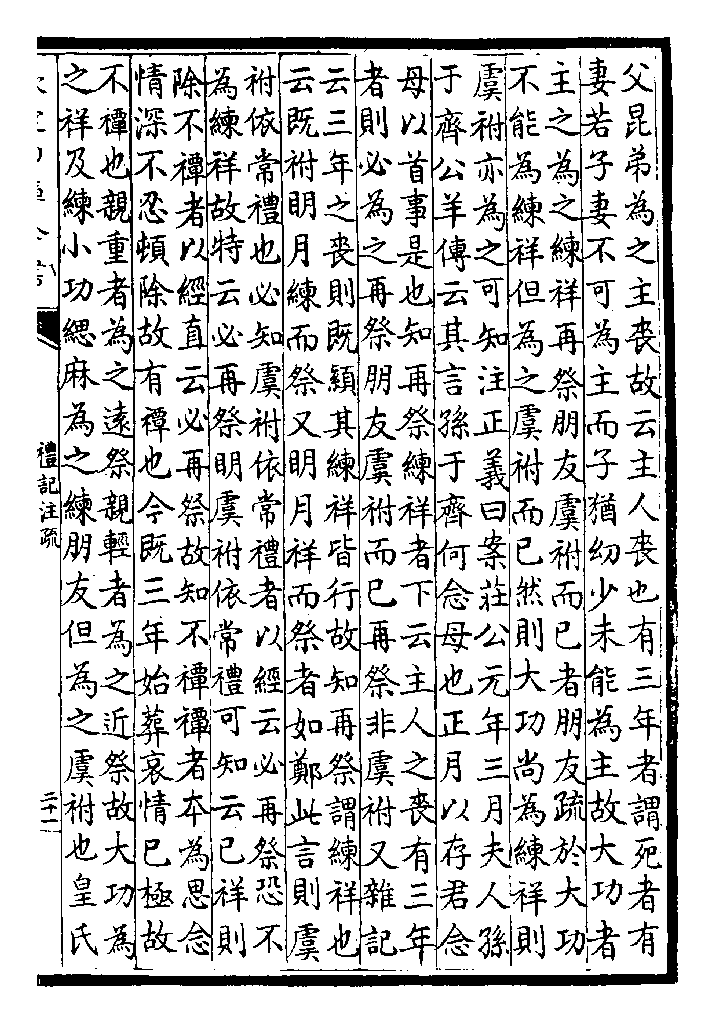 父昆弟為之主喪故云主人喪也有三年者謂死者有
妻若子妻不可為主而子猶幼少未能為主故大功者
主之為之練祥再祭朋友虞祔而已者朋友疏於大功
不能為練祥但為之虞祔而已然則大功尚為練祥則
虞祔亦為之可知注正義曰案莊公元年三月夫人孫
于齊公羊傳云其言孫于齊何念母也正月以存君念
母以首事是也知再祭練祥者下云主人之喪有三年
者則必為之再祭朋友虞祔而已再祭非虞祔又雜記
云三年之喪則既顈其練祥皆行故知再祭謂練祥也
云既祔明月練而祭又明月祥而祭者如鄭此言則虞
祔依常禮也必知虞祔依常禮者以經云必再祭恐不
為練祥故特云必再祭明虞祔依常禮可知云已祥則
除不禫者以經直云必再祭故知不禫禫者本為思念
情深不忍頓除故有禫也今既三年始葬哀情已極故
不禫也親重者為之遠祭親輕者為之近祭故大功為
之祥及練小功緦麻為之練朋友但為之虞祔也皇氏
禮記注疏
二十一